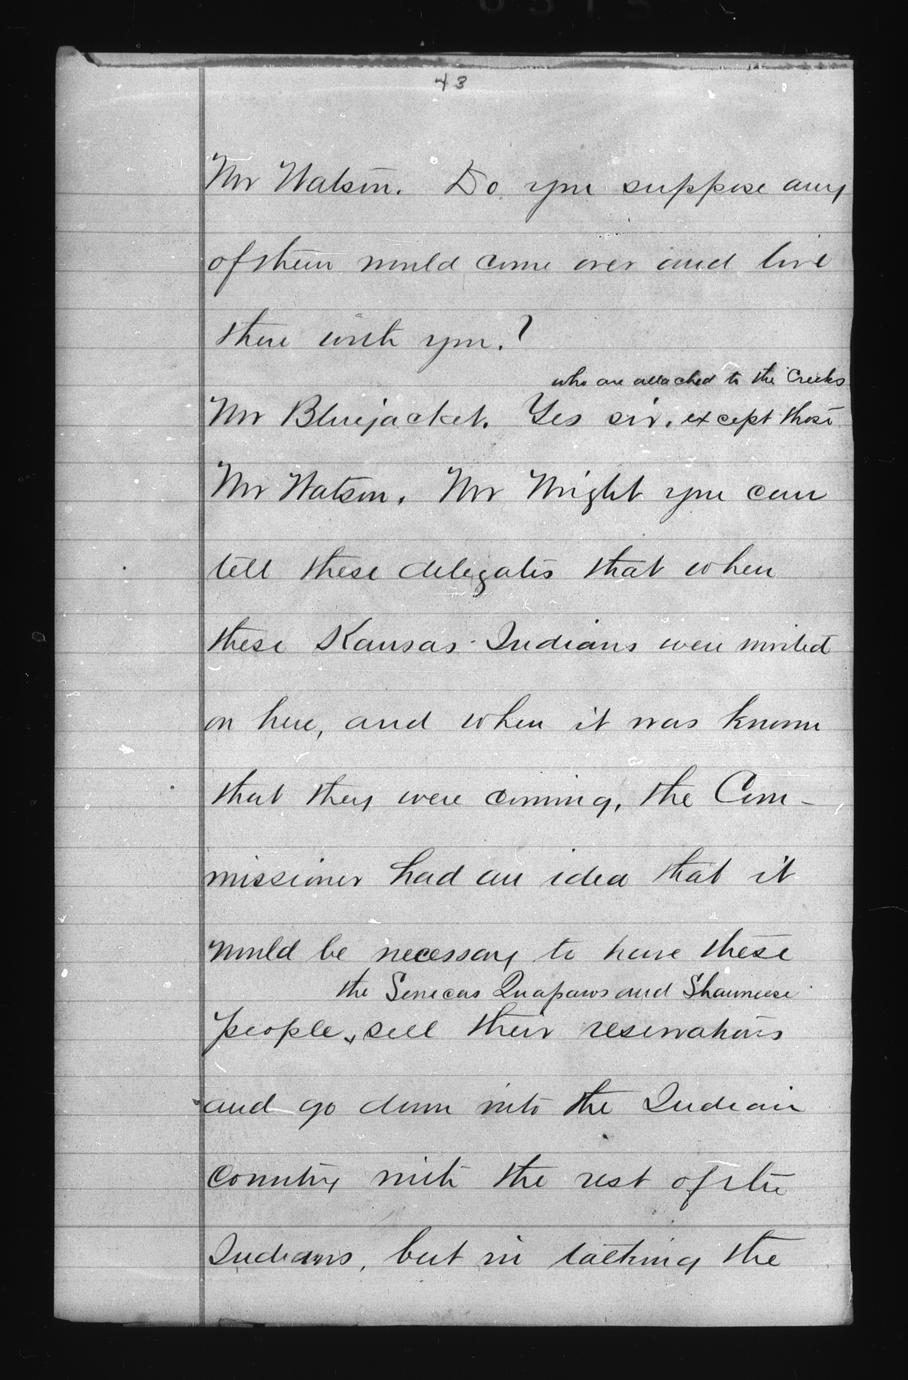 43
Mr Watson. Do you suppose any
of them would come over and live
there with you.?
who are attached to the Creeks
Mr Bluejacket. Yes sir, except those
Mr Watson. Mr Wright you can
tell these delegates that when
these Kansas Indians were invited
on here, and when it was known
that they were coming, the Com-
missioner had an idea that it
would be necessary to have these
the Senecas Quapaws and Shawnees
people, sell their reservations
and go down into the Indian
Country with the rest of the
Indians, but in talking the